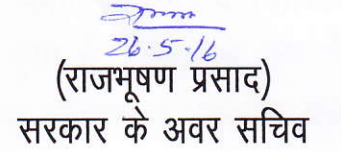 26.5.16
(राजभूषण प्रसाद)
सरकार के अवर सचिव